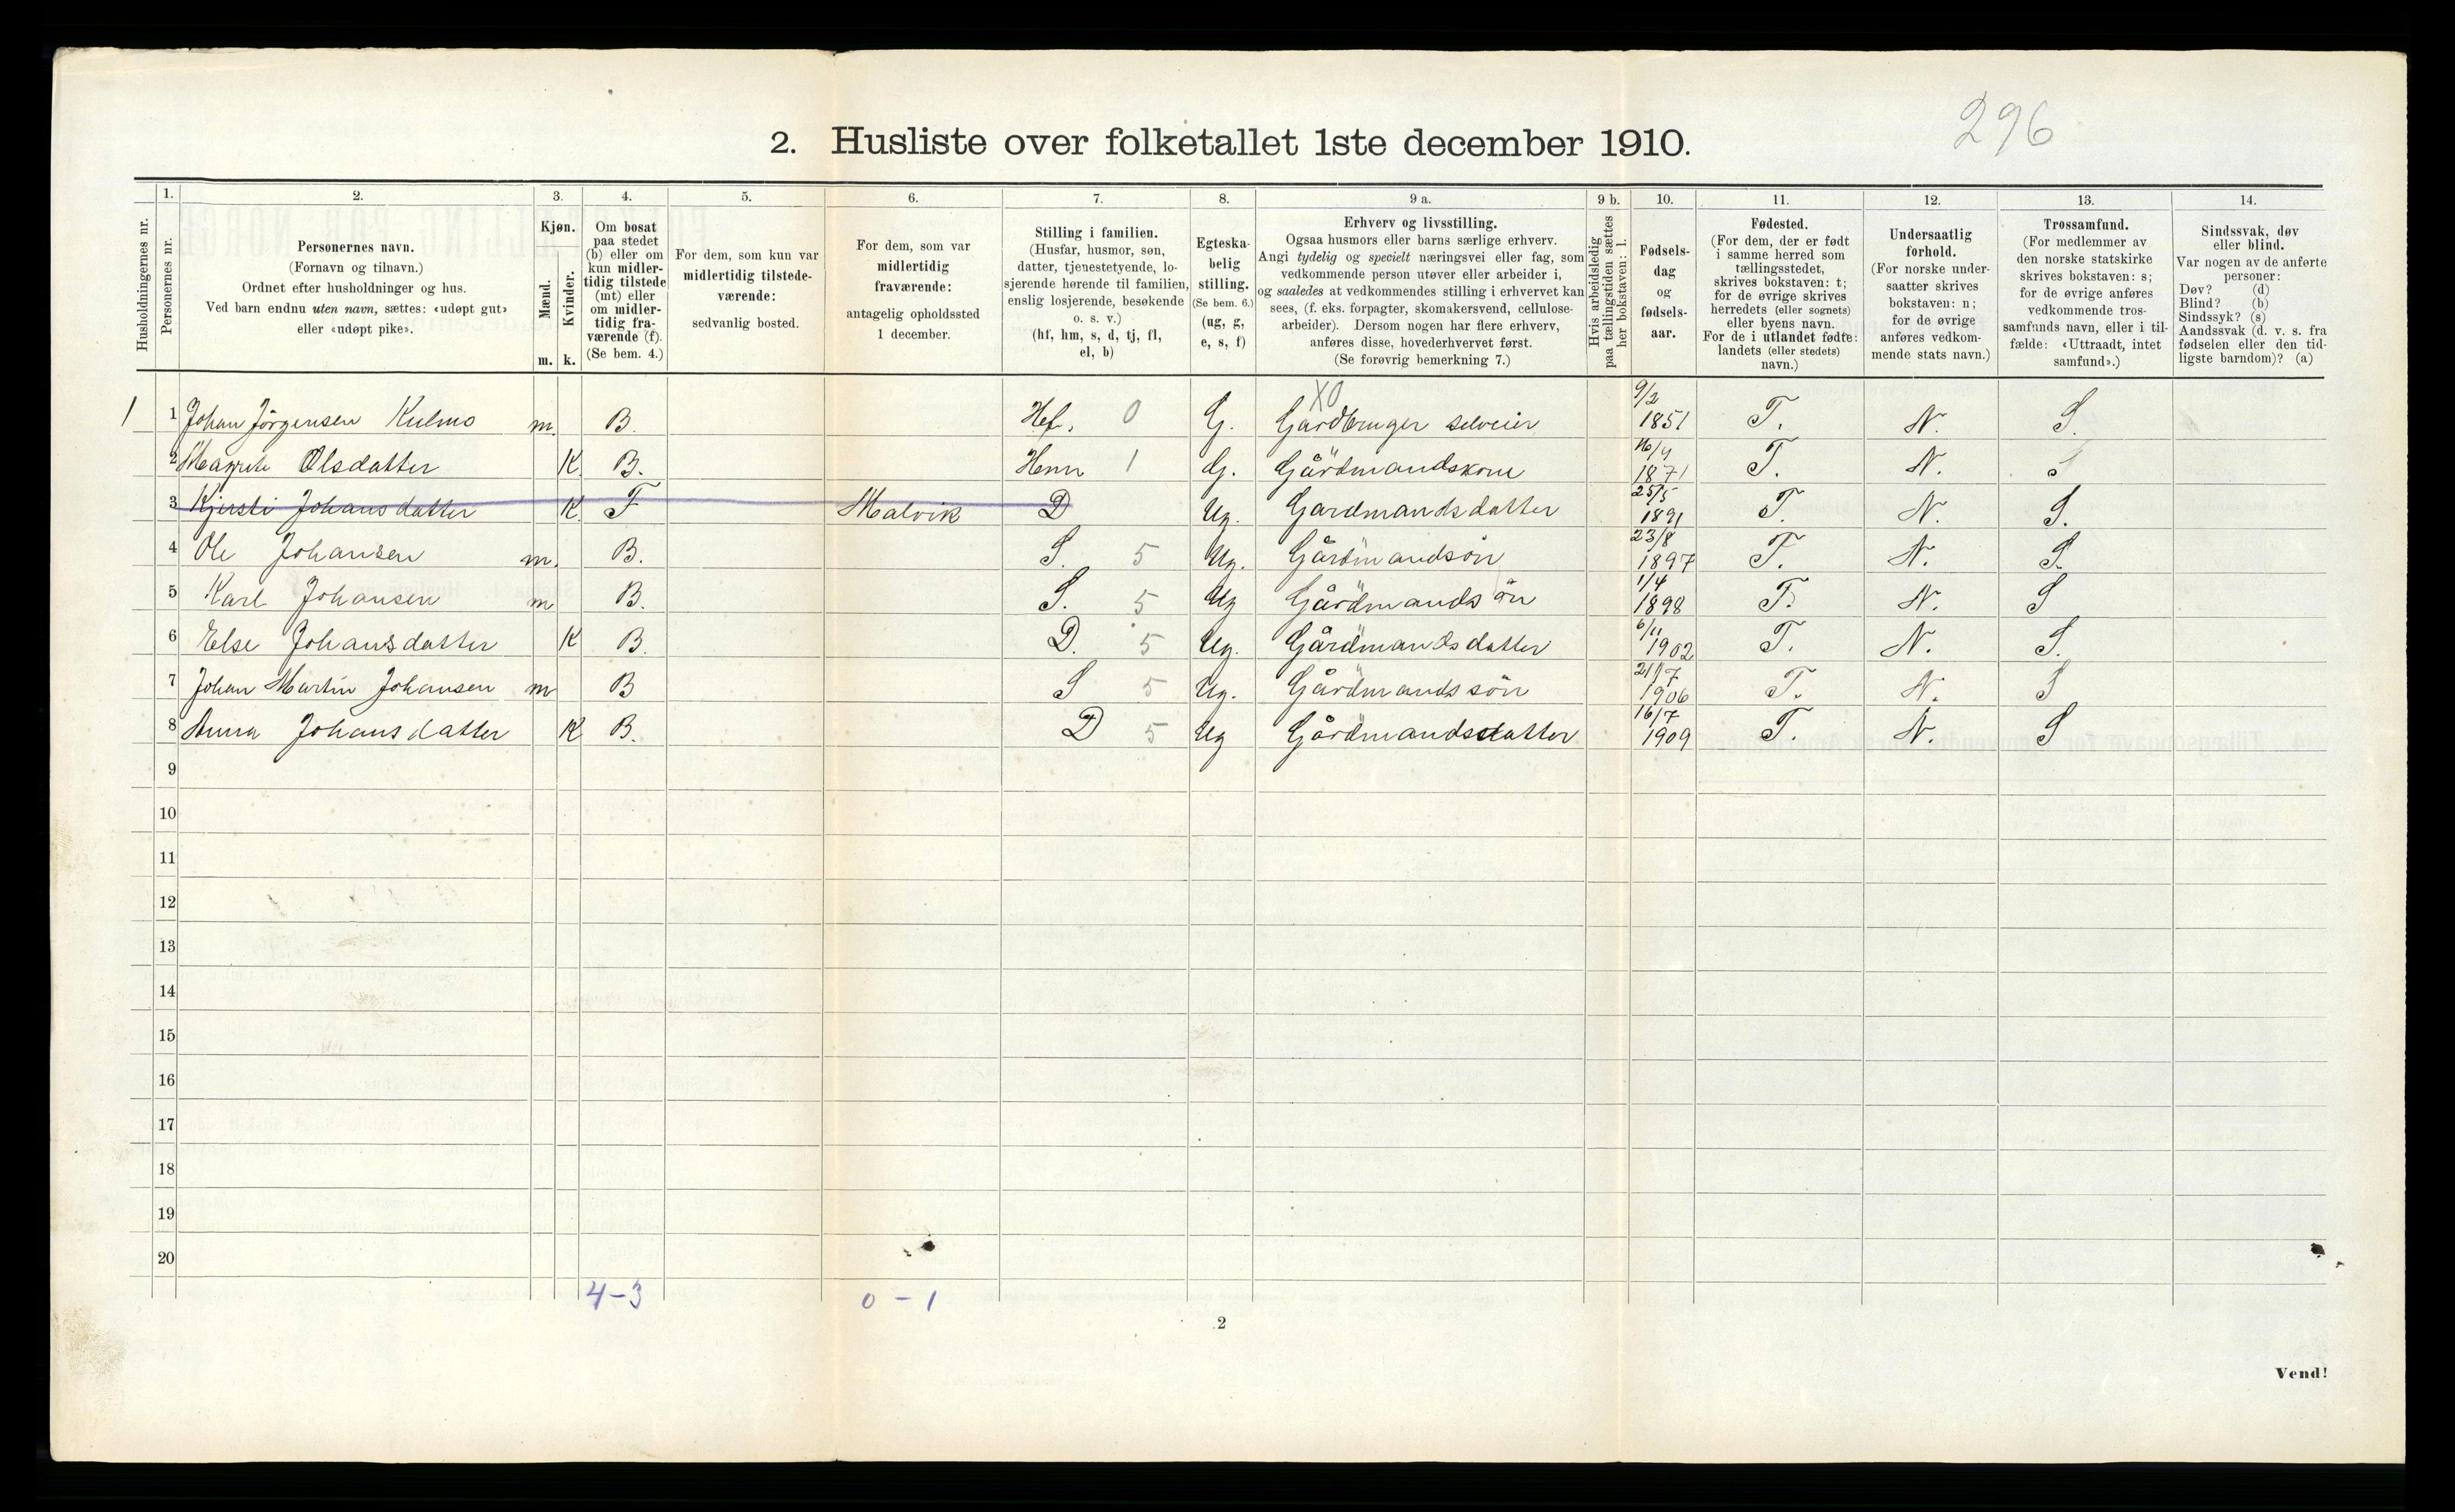 296
2. Husliste over folketallet 1ste december 1910.
Husholdningernes nr.
1.
Personernes nr.
2.
Personernes navn.
(Fornavn og tilnavn.)
Ordnet efter husholdninger og hus.
Ved barn endnu uten navn, sættes: «udøpt gut»
eller «udøpt pike».
3.
Kjøn.
Mænd.
Kvinder.
m. k.
4.
Om bosat
paa stedet
(b) eller om
kun midler-
tidig tilstede
(mt) eller
om midler-
tidig fra-
værende (f).
(Se bem. 4.)
5.
For dem, som kun var
midlertidig tilstede-
værende:
sedvanlig bosted.
6.
For dem, som var
midlertidig
fraværende:
antagelig opholdssted
1 december.
7.
Stilling i familien.
(Husfar, husmor, søn,
datter, tjenestetyende, lo-
sjerende hørende til familien,
enslig losjerende, besøkende
o. s. v.)
(hf, hm, s, d, tj, fl,
el, b)
8.
Egteska-
belig
stilling.
(Se bem. 6.)
(ug, g,
e, s, f)
9 a.
Erhverv og livsstilling.
Ogsaa husmors eller barns særlige erhverv.
Angi tydelig og specielt næringsvei eller fag, som
vedkommende person utøver eller arbeider i,
og saaledes at vedkommendes stilling i erhvervet kan
sees, (f. eks. forpagter, skomakersvend, cellulose-
arbeider). Dersom nogen har flere erhverv,
anføres disse, hovederhvervet først.
(Se forøvrig bemerkning 7.)
9 b.
Hvis arbeidsledig
paa tællingstiden sættes
her bokstaven: l.
10.
Fødsels-
dag
og
fødsels-
aar.
11.
Fødested.
(For dem, der er født
i samme herred som
tællingsstedet,
skrives bokstaven: t;
for de øvrige skrives
herredets (eller sognets)
eller byens navn.
For de i utlandet fødte:
landets (eller stedets)
navn.)
12.
Undersaatlig
forhold.
(For norske under-
saatter skrives
bokstaven: n;
for de øvrige
anføres vedkom-
mende stats navn.)
13.
Trossamfund.
(For medlemmer av
den norske statskirke
skrives bokstaven: s;
for de øvrige anføres
vedkommende tros-
samfunds navn, eller i til-
fælde: «Uttraadt, intet
samfund».)
14.
Sindssvak, døv
eller blind.
Var nogen av de anførte
personer:
Døv? (d)
Blind? (b)
Sindssyk? (s)
Aandssvak (d. v. s. fra
fødselen eller den tid-
ligste barndom)? (a)
1 1 Johan Jörgensen Kulmo m. B. Hef. 0 G. X0 Gardbruger selveier 9/2 1851 T. N. S.
2 Magrete Olsdatter K. B. Hmr 1 G. Gårdmandskone 16/4 1871 T. N. S
3 Kjersti Johansdatter K. F Malvik D Ug. Gardmandsdatter 25/5 1891 T. N. S.
4 Ole Johansen m. B. S. 5 Ug. Gårdmandsön 23/8 1897 T. N. S.
5 Karl Johansen m B. S. 5 Ug Gårdmandsön 1/4 1898 T. N. S
6 Else Johansdatter K B. D. 5 Ug. Gårdmandsdatter 6/11 1902 T. N. S.
7 Johan Martin Johansen m B S 5 Ug. Gårdmandssön 21/7 1906 T. N. S
8 Anna Johansdatter K B. D 5 Ug Gårdmandsdatter 16/7 1909 T. N. S
9
10
11
12
13
14
15
16
17
18
19
20
4-3
0-1
2
Vend!